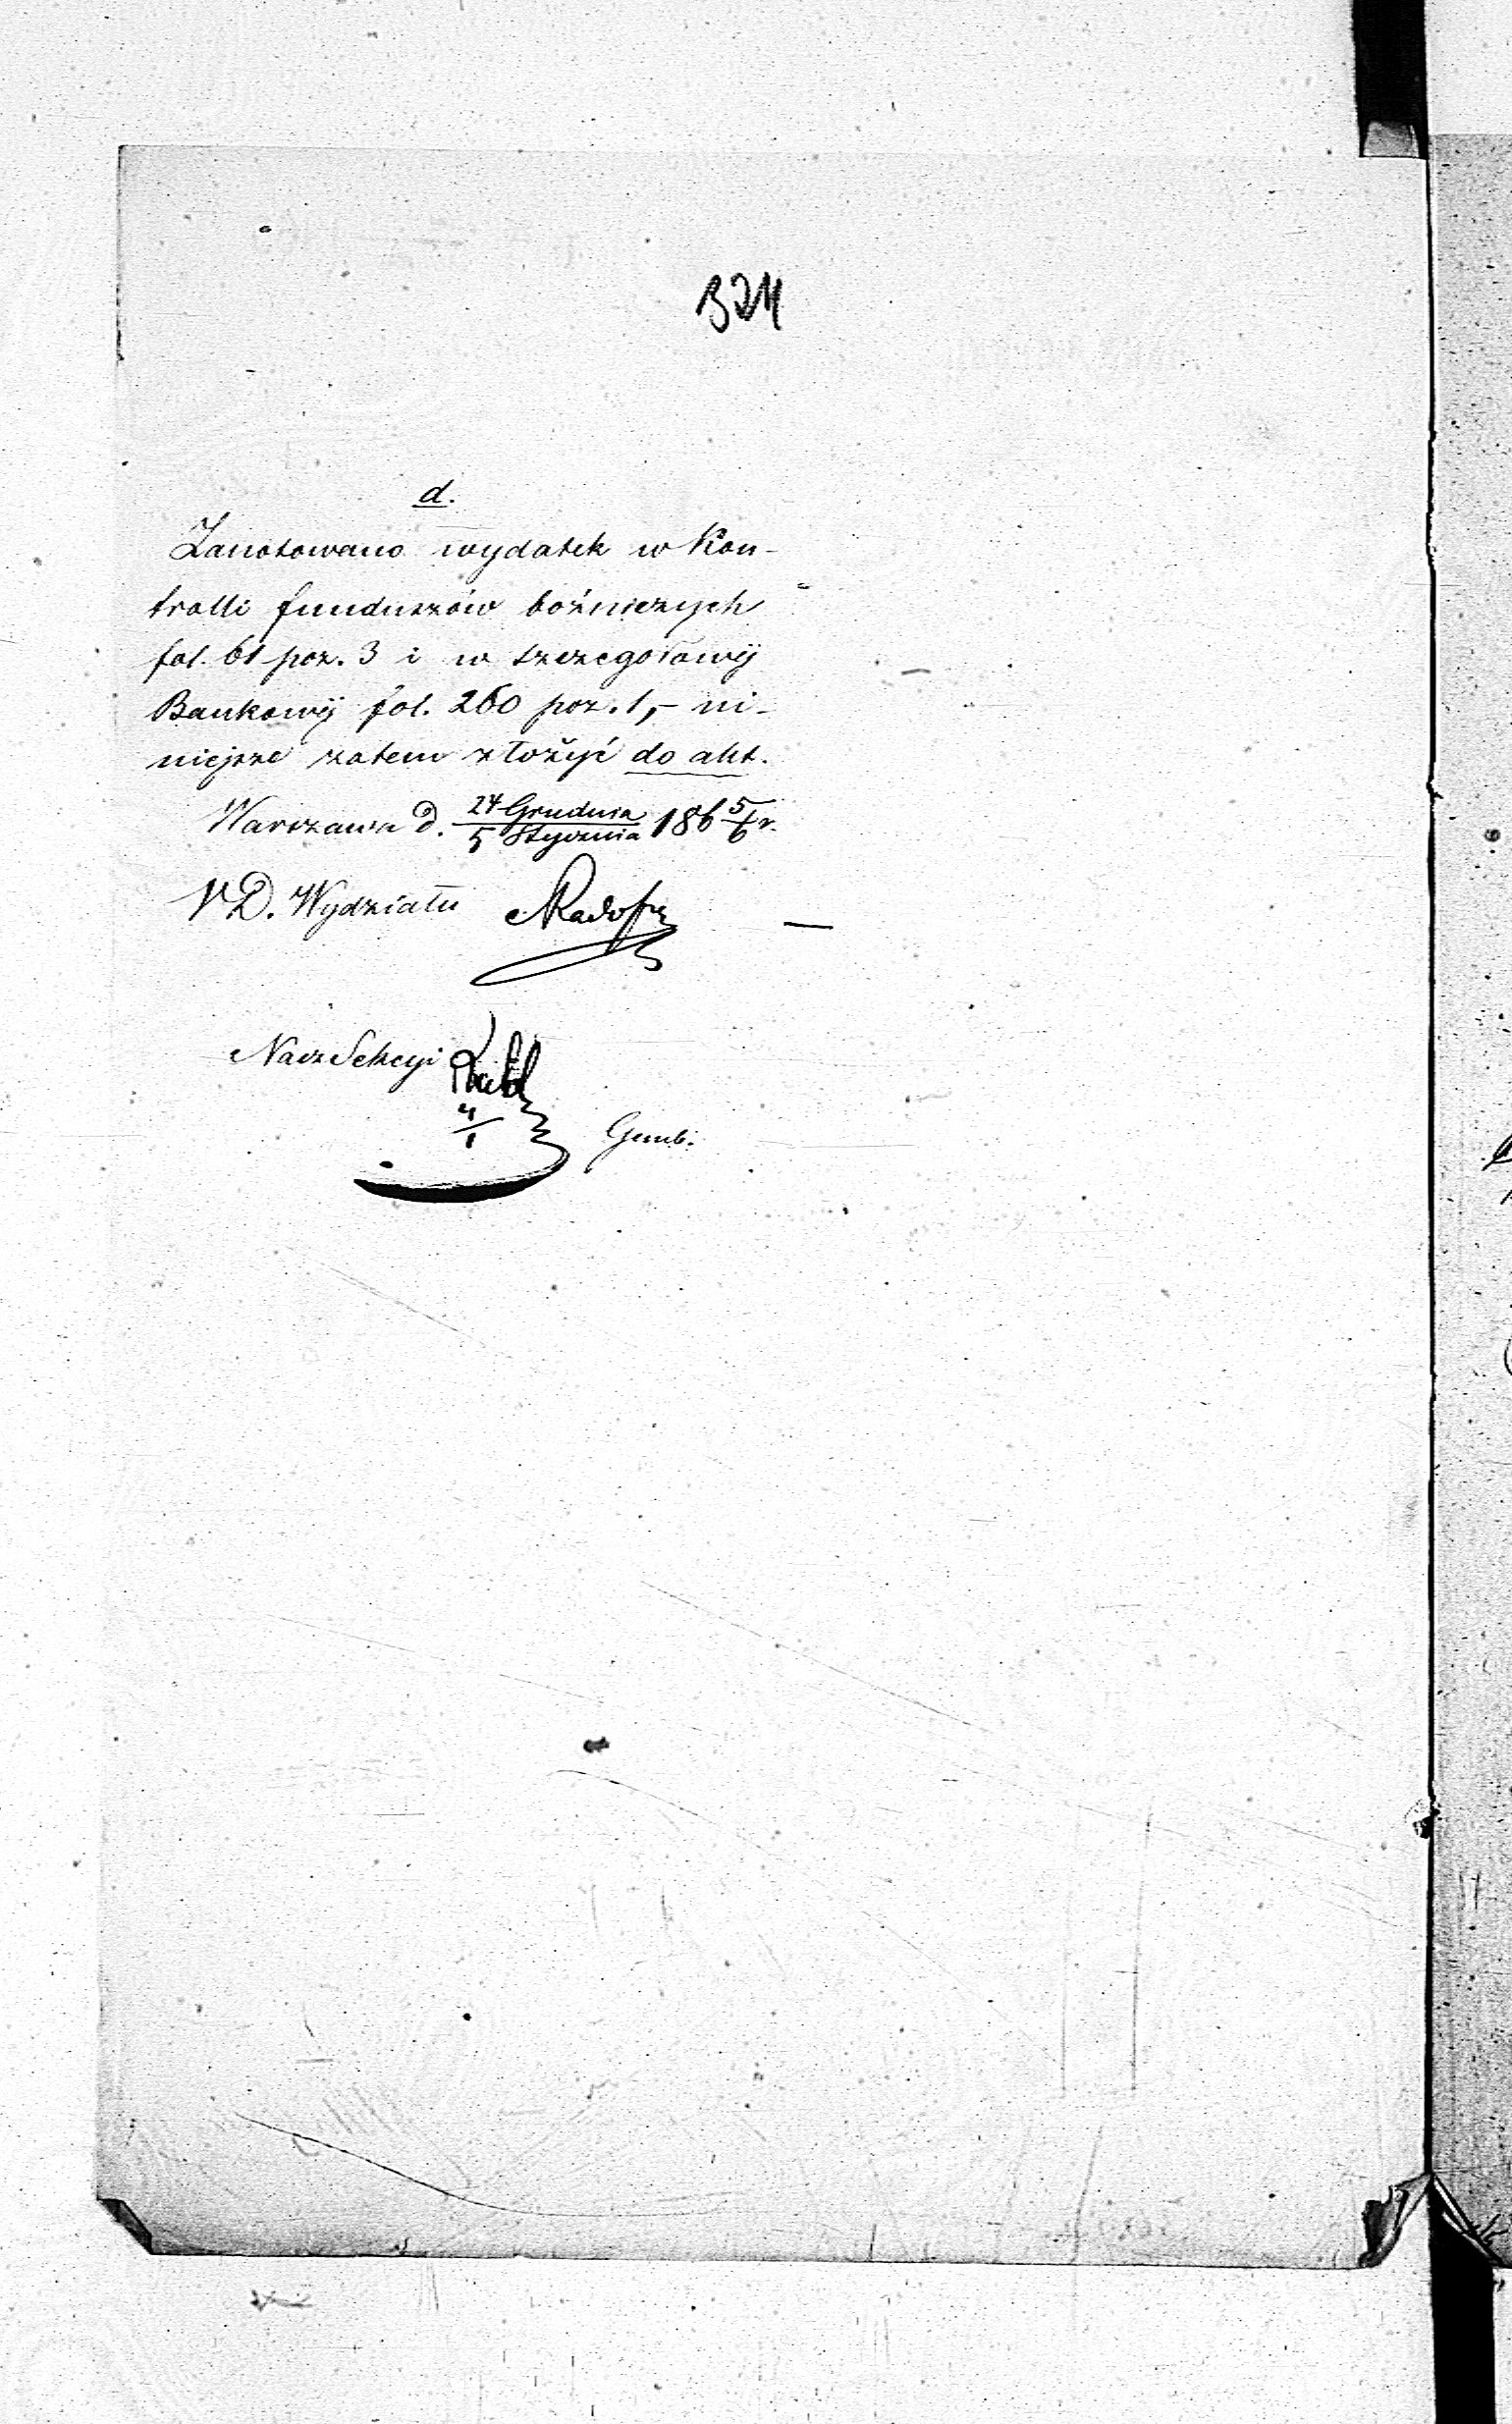 324
d.
Zanotowano wydatek w Kon-
trolli funduszów bożniczych
fol. 61 poz. 3 i w szczegołowéj
Bankowéj fol. 260 poz. 1, – ni-
niejsze zatem złożyć do akt.
Warszawa d. 24 Grudnia / 5 Stycznia 186 5/6 r.
VD. Wydziału
Nacz Sekcyi
4/1
Gumb.